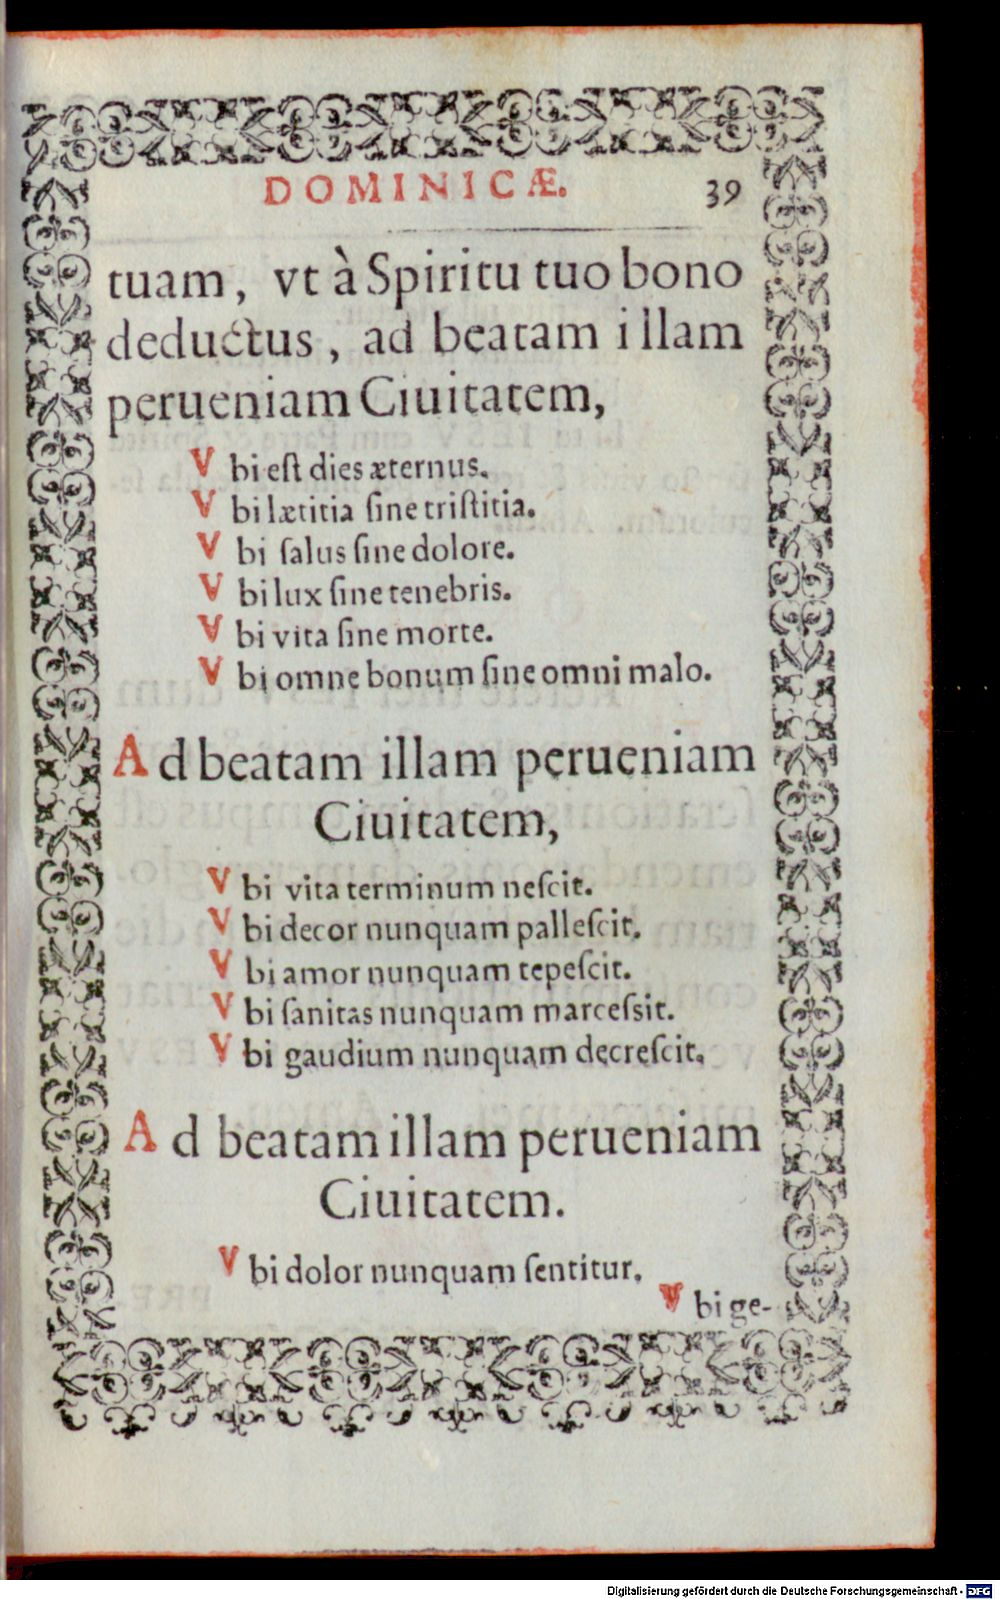 DOMINICÆ. 39
tuam, vt à Spiritu tuo bono
deductus, ad beatam illam
perueniam Ciuitatem,
Vbi eſt dies æternus.
Vbi lætitia ſine triſtitia.
Vbi ſalus ſine dolore.
Vbi lux ſine tenebris.
Vbi vita ſine morte.
Vbi omne bonum ſine omni malo.
Ad beatam illam perueniam
Ciuitatem,
Vbi vita terminum neſcit.
Vbi decor nunquam palleſcit.
Vbi amor nunquam tepeſcit.
Vbi ſanitas nunquam marceſsit.
Vbi gaudium nunquam decreſcit.
Ad beatam illam perueniam
Ciuitatem.
Vbi dolor nunquam ſentitur.
Vbi ge-
Digitalisierung gefördert durch die Deutsche Forschungsgemeinschaft - DFG